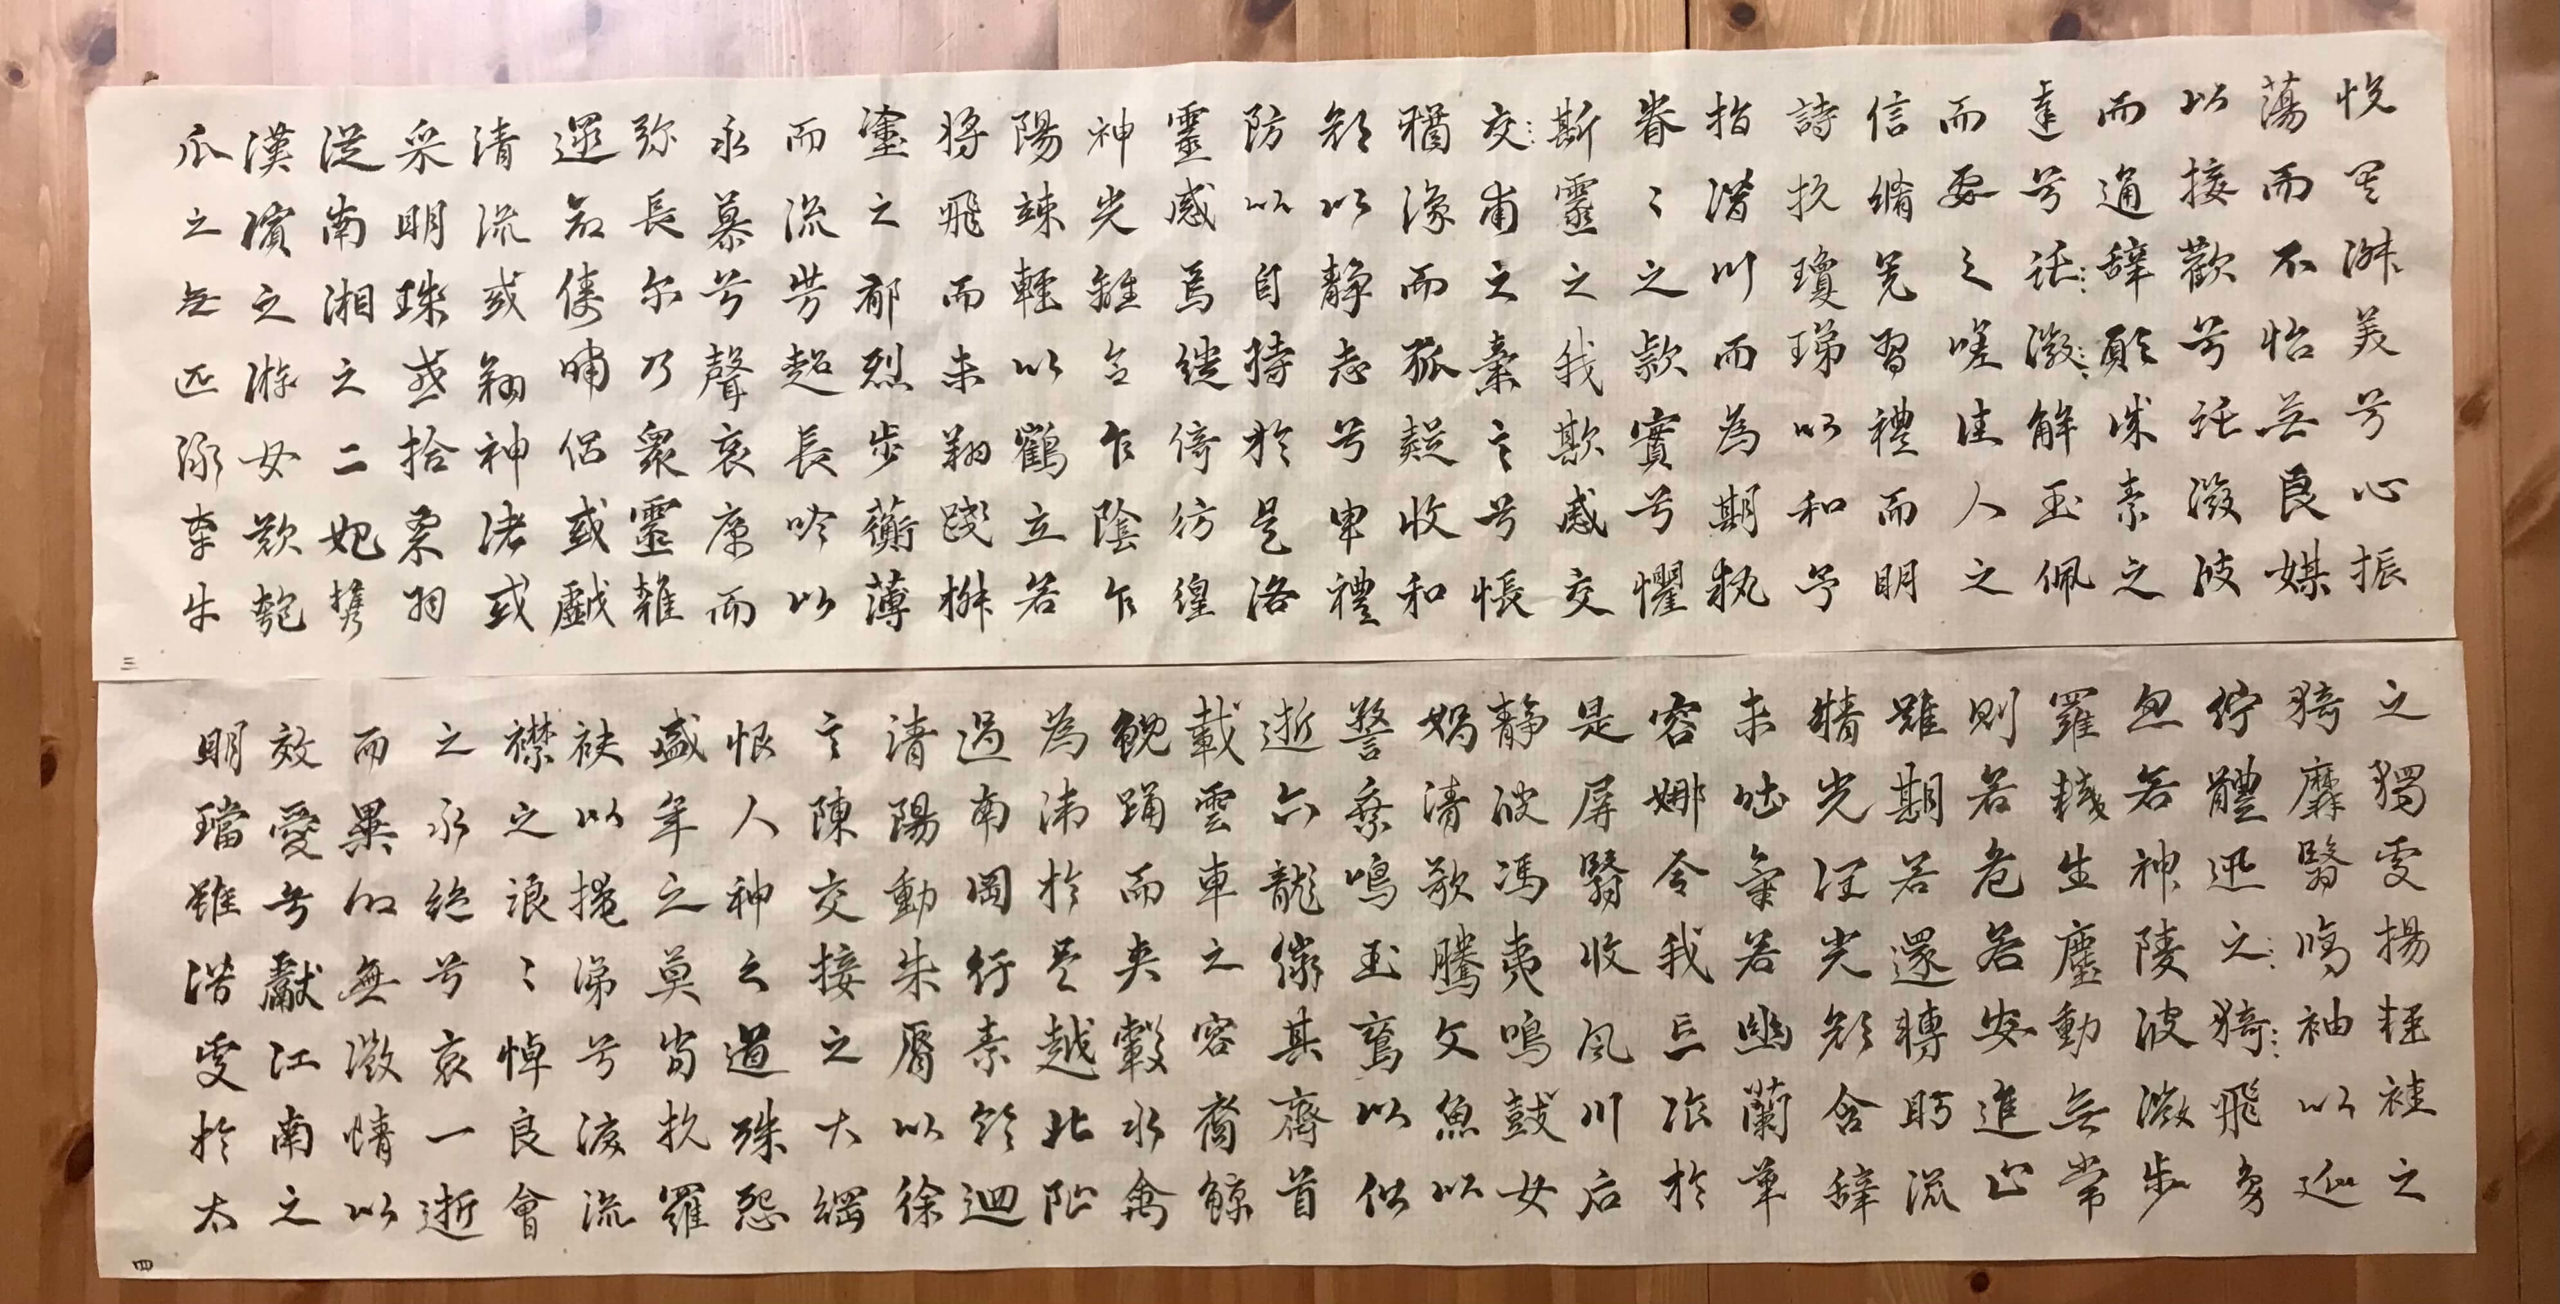 悅其淑美兮心振
蕩而不怡無良媒
以接歡兮託微波
而通辭願誠素之
達兮託微解玉佩
而要之嗟佳人之
信脩羌習禮而明
詩抗瓊珶以和予
指潛川而為期執
眷〻之款實兮懼
斯靈之我欺感交
交甫之棄言兮悵
猶豫而狐疑收和
顏以靜志兮申禮
防以自持於是洛
靈感焉徙倚彷徨
神光離合乍陰乍
陽竦輕以鶴立若
將飛而未翔踐椒
塗之郁烈步蘅薄
而流芳超長吟以
永慕兮聲哀厲而
弥長尔乃衆靈雜
遝命儔嘯侶或戲
清流或翔神渚或
采明珠或拾翠羽
從南湘之二妃攜
漢濱之游女歎匏
瓜之無匹詠牽牛
三
之獨處揚輕袿之
猗靡翳脩袖以延
佇體迅之猗飛鳧
忽若神陵波微步
羅襪生塵動無常
則若危若安進止
難期若還轉眄流
精光汪光顏含辭
未吐氣若幽蘭華
容娜令我忘飡於
是屏翳收風川后
靜波馮夷鳴鼓女
媧清歌騰文魚以
警乘鳴玉鸞以偕
逝六龍儼其齊首
載雲車之容裔鯨
鯢踊而夾轂水禽
為衛於是越北沚
過南岡紆素領迴
清陽動朱脣以徐
言陳交接之大綱
恨人神之道殊怨
盛年之莫當抗羅
袂以掩涕兮淚流
襟之浪〻悼良會
之永絕兮哀一逝
而異鄉無微情以
效愛兮獻江南之
明璫雖潛處於太
四